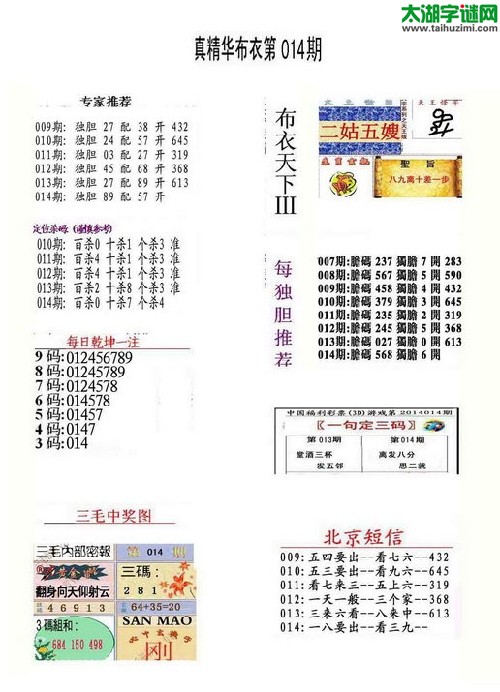 太湖字谜网
www.taihuzimi.com
真精华布衣第014期
专家推荐
009期: 独胆 27 配 38 开 432
010期: 独胆 24 配 57 开 645
011期: 独胆 03 配 27 开 319
012期: 独胆 45 配 68 开 368
013期: 独胆 27 配 89 开 613
014期: 独胆 89 配 57 开
定位杀码:(谨慎参考)
010期: 百杀0 十杀1 个杀3 准
011期: 百杀4 十杀4 个杀3 准
012期: 百杀4 十杀1 个杀3 准
013期: 百杀2 十杀8 个杀3 准
014期: 百杀0 十杀7 个杀4
每日乾坤一注
9码:012456789
8码:01245789
7码:0124578
6码:014578
5码:01457
4码:0147
3码:014
三毛中奖图
三毛內部密報
第 014 期
翻身向天仰射云
46913
3碼組和:
684 150 498
三碼:
281
64+35=20
SAN MAO
刚
布衣天下III
二姑五嫂
聖旨
八九离十差一步
每独胆推荐
007期:膽碼 237 獨膽 7 開 283
008期:膽碼 567 獨膽 5 開 590
009期:膽碼 458 獨膽 4 開 432
010期:膽碼 379 獨膽 3 開 645
011期:膽碼 235 獨膽 2 開 319
012期:膽碼 245 獨膽 5 開 368
013期:膽碼 027 獨膽 0 開 613
014期:膽碼 568 獨膽 6 開
中国福利彩票(3D)游戏第2014014期
〖一句定三码〗
第013期
第014期
堂酒三杯
离发八分
发五邻
思二裁
北京短信
009: 五四要出--看七六--432
010: 五三要出--看九六--645
011: 看七来三--五上六--319
012: 一天一般--三个家--368
013: 三来六看--八来中--613
014: 一八要出--看三九--